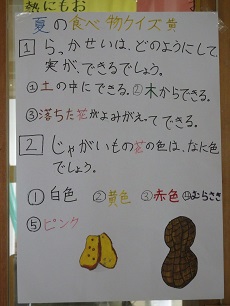 熱にもお
夏の食べ物クイズ黄
1 らっかせいは、どのようにして、
実が、できるでしょう。
①土の中にできる。②木からできる。
③落ちた花がよみがえってできる。
2 じゃがいもの花の色は、なに色
でしょう。
①白色 ②黄色 ③赤色 ④むらさき
⑤ピンク